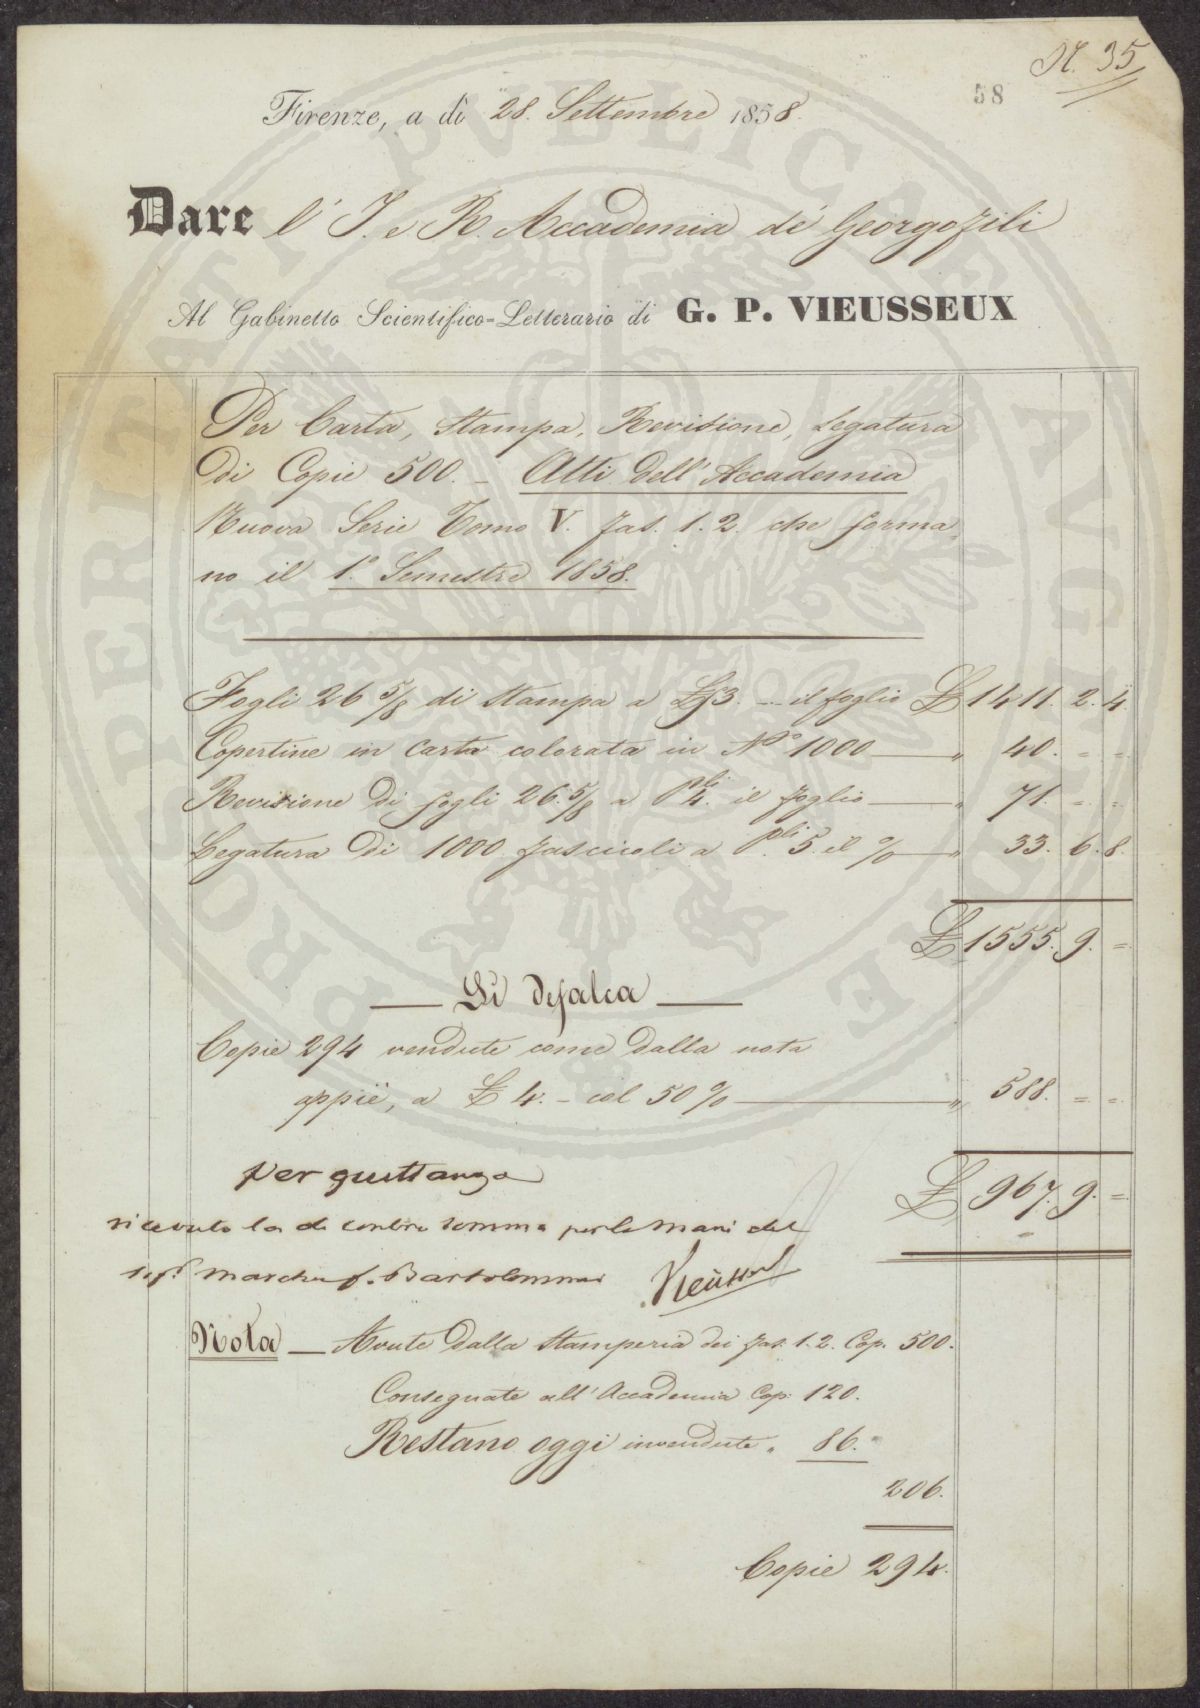 N. 35
58
Firenze, a dì 28. Settembre 1858.
Dare l' I. e R. Accademia de' Georgofili
Al Gabinetto Scientifico=Letterario di G. P. VIEUSSEUX
Per Carta, Stampa, Revisione, Legatura
di Copie 500. – Atti dell' Accademia
Nuova Serie Tomo V. Fas. 1. 2. che forma=
no il 1.° Semestre 1858.
Fogli 26 5/8 di Stampa a £53. – il foglio £ 1411. 2. 4.
Copertine in Carta colorata in N.° 1000 — „ 40. = =
Revisione di fogli 26. 5/8 a P.li 4. il foglio — „ 71. = =
Legatura di 1000 fascicoli a P.li 5. il % — „ 33. 6. 8.
£ 1555. 9. =
— Si defalca —
Copie 294 vendute come dalla nota
appiè, a £ 4. – col 50 % — „ 588. = =
£ 967. 9. =
per quittanza
ricevuto la di contro somma per le mani del
sig.r march. f. Bartolommei Vieusseux
Nota — Avute dalla Stamperia dei fas. 1. 2. Cop. 500.
Consegnate all' Accademia Cop. 120.
Restano oggi invendute „ 86.
206.
Copie 294.
PROSPERITATI PVBLICAE AVGENDAE